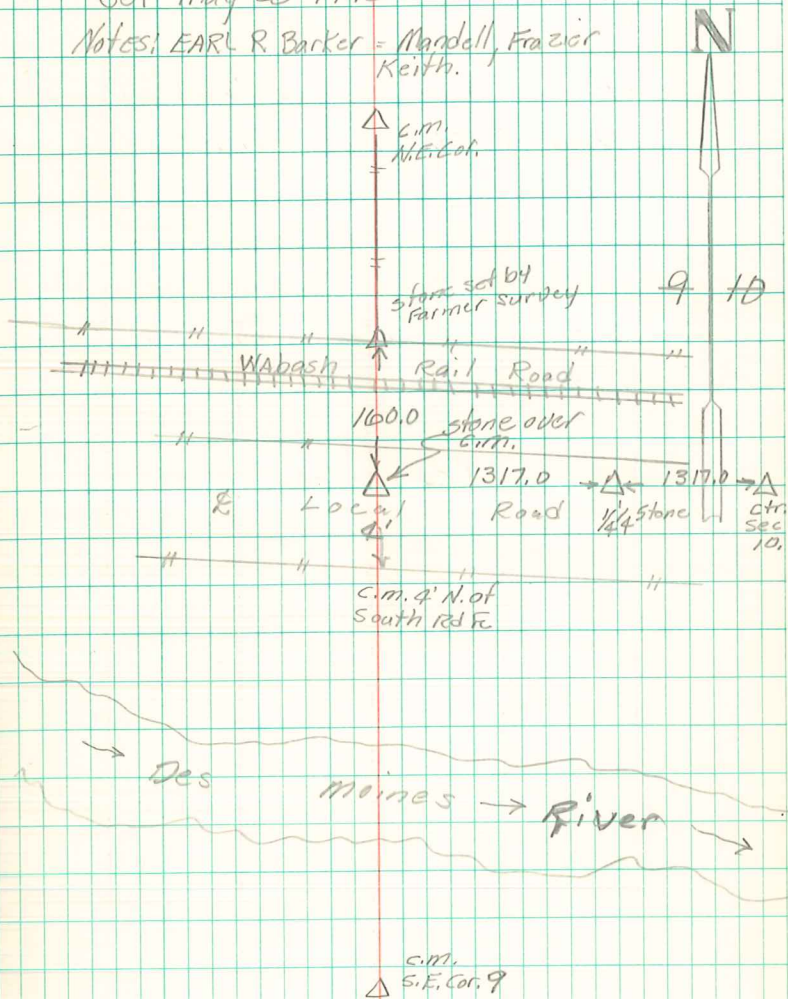 Notes: EARL R Barker = Mandell, Frazier
Keith.
N
c.m.
N.E.Cor.
stone set by
Farmer survey
9 10
WAbash Rail Road
160.0
stone over
c.m.
1317.0 1317.0
Local Road
1/4 1/4 Stone
ctr.
Sec
10.
4'
c.m. 4' N. of
South Rd Fc
Des moines River
c.m.
S.E. Cor. 9